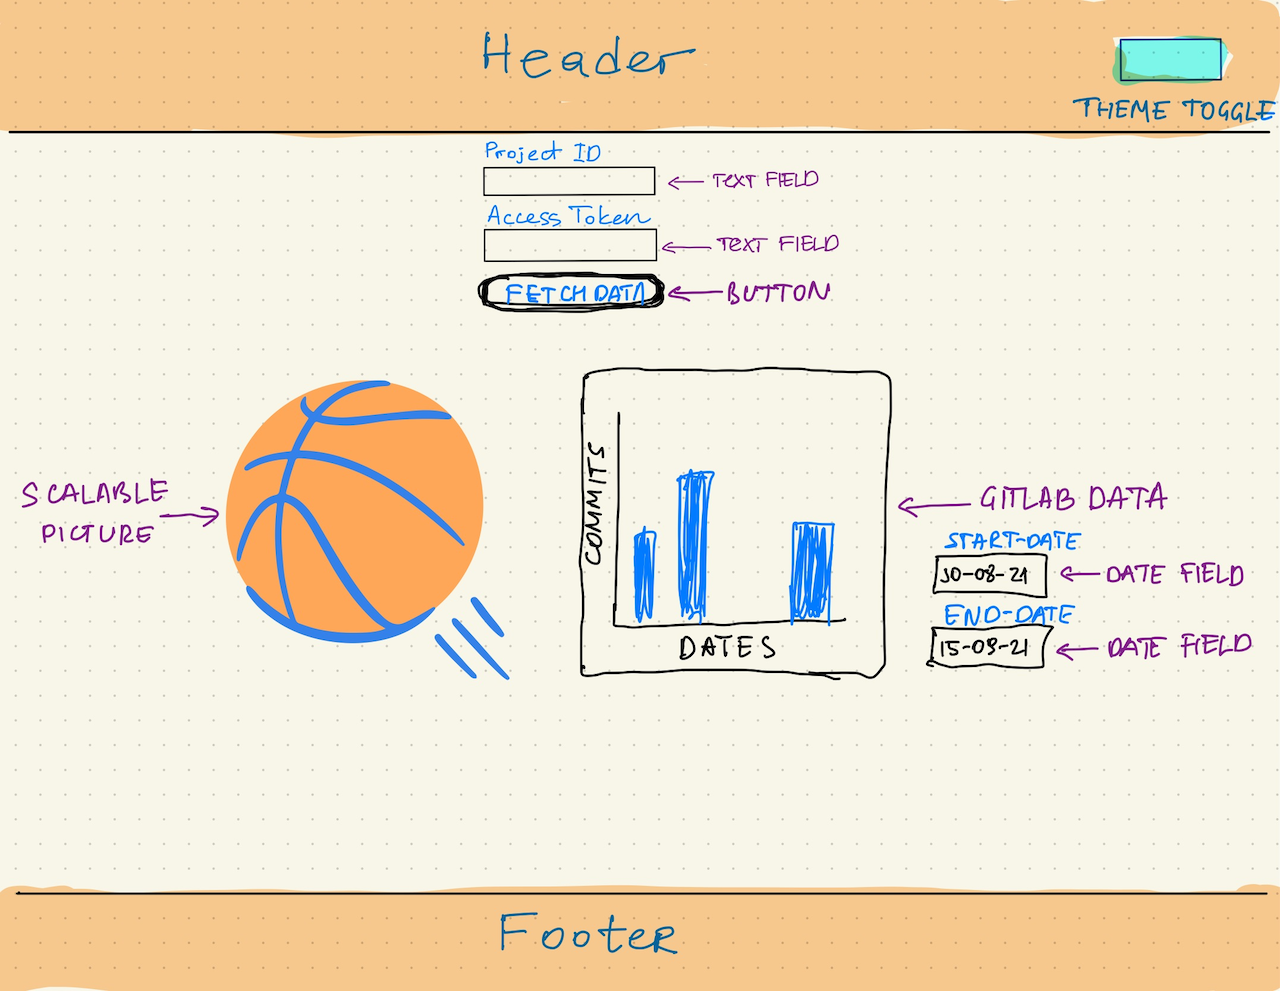 Header
THEME TOGGLE
Project ID
TEXT FIELD
Access Token
TEXT FIELD
FETCH DATA
BUTTON
SCALABLE
PICTURE
COMMITS
DATES
GITLAB DATA
START-DATE
30-08-21
DATE FIELD
END-DATE
15-09-21
DATE FIELD
Footer